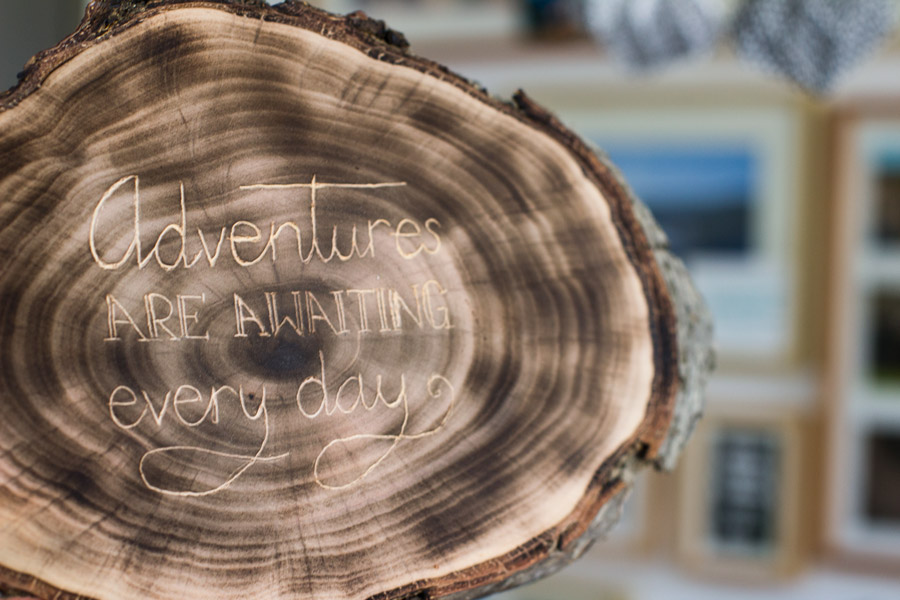 Adventures
ARE AWAITING
every day